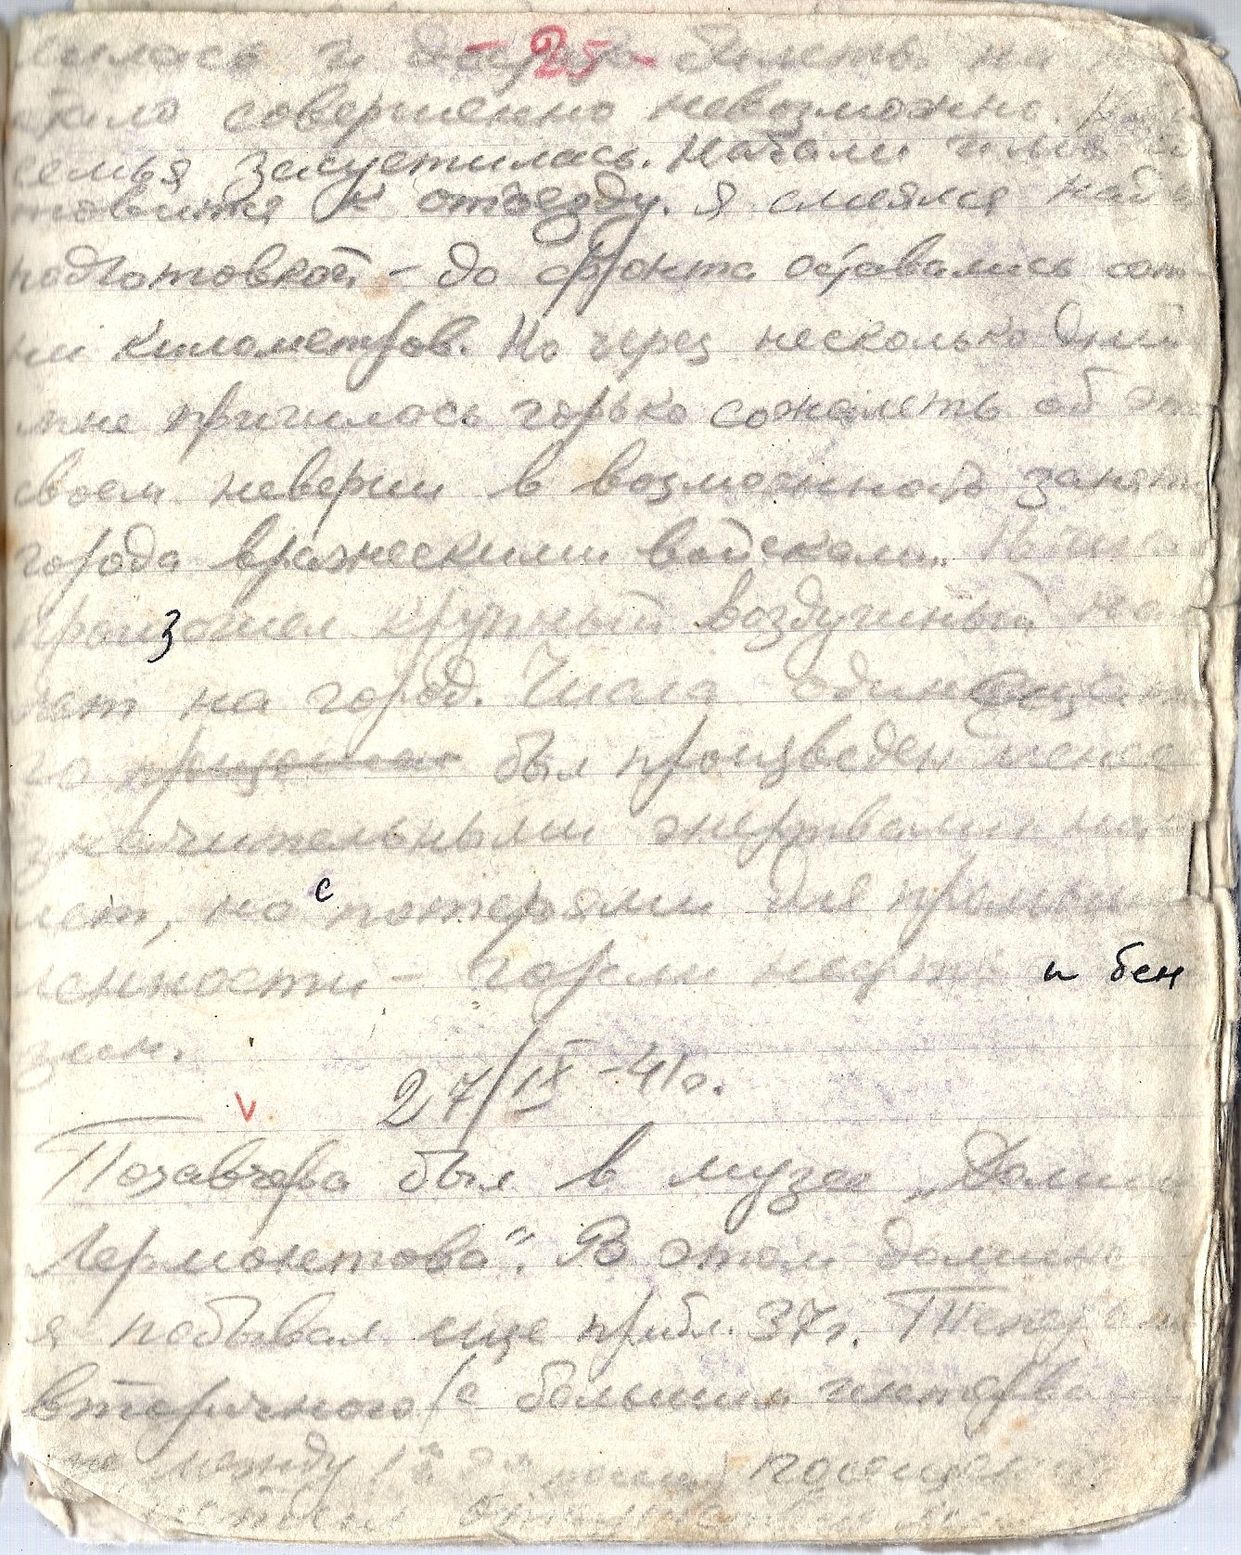 - 25 -
лилась и достать билеты на
совершенно невозможно.
семья засуетилась. Начали
товится к отъезду. Я смеялся над
подготовкой – до фронта оставались сот-
ни километров. Но через несколько дней
мне пришлось горько сожалеть об
своем неверии в возможность занят
города вражескими войсками.
произошел крупный воздушный на
лет на город. Числа одинадцато
го произошел был произведен менее
значительными жертвами на
лет, но с потерями для промыш
ленности – горели нефть и бен
зин.
27/IX–41 г.
Позавчера был в музее „Домик
Лермонтова". В этом домике
я побывал еще прибл. 37 г. Теперь
вторичного /с большим интерва
между 1м 2м посещен